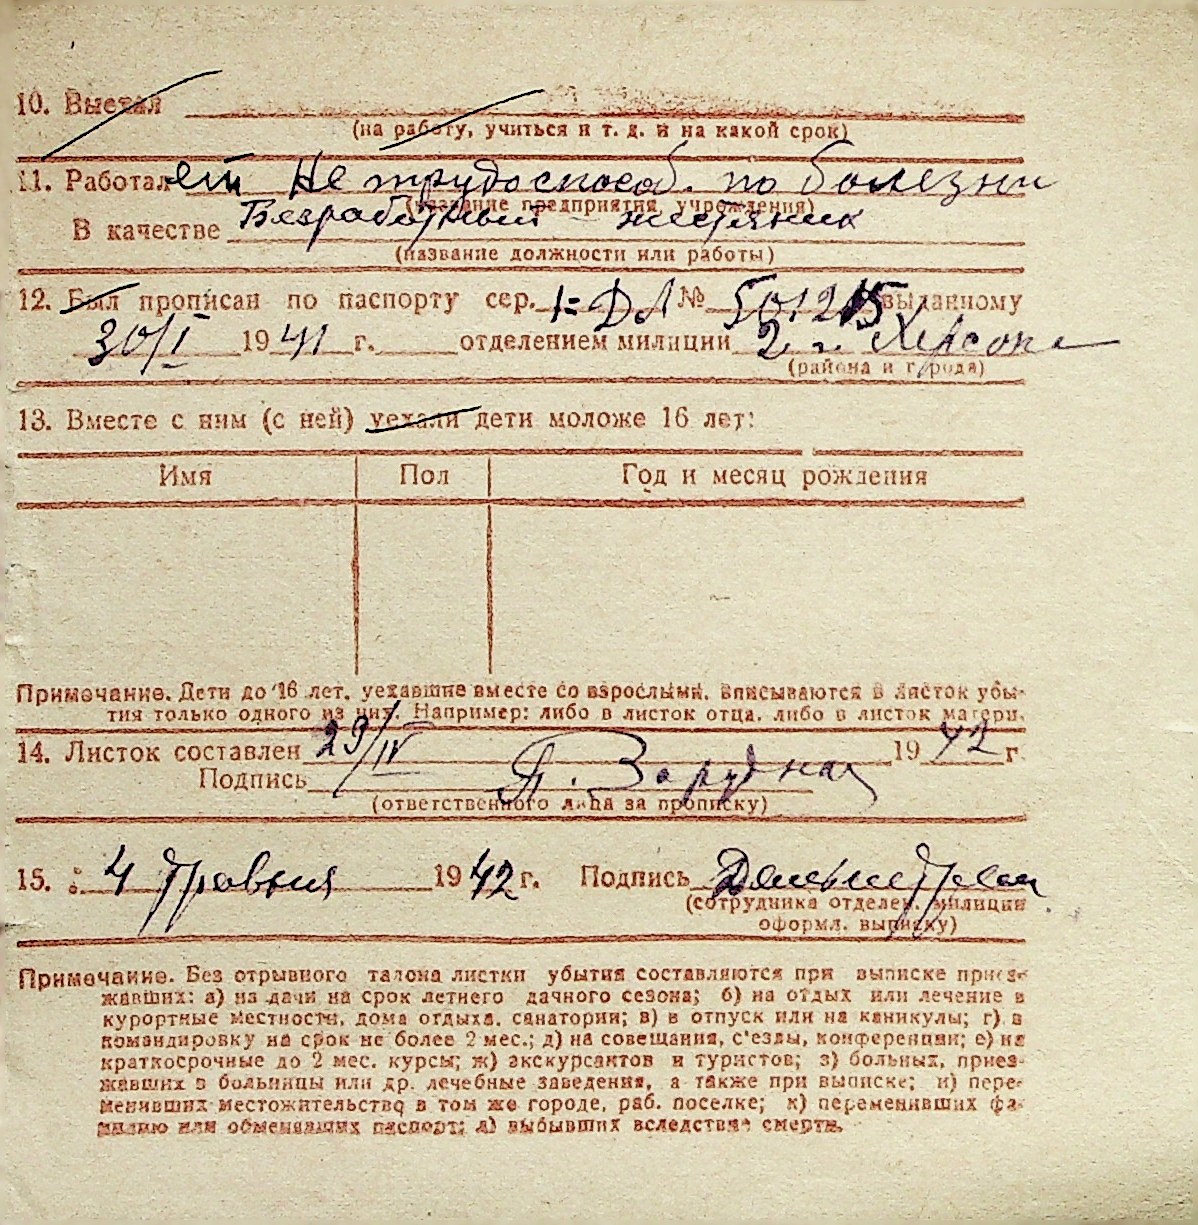 10. Выехал
(на работу, учиться и т. д. и на какой срок)
11. Работает Не трудоспособ. по болезни
(название предприятия, учреждения)
В качестве Безработный жестяник
(название должности или работы)
12. Был прописан по паспорту сер. 1-ДЛ № 501215 выданному
30/I 1941 г. отделением милиции 2 г. Херсона
(района и города)
13. Вместе с ним (с ней) уехали дети моложе 16 лет:
Имя Пол Год и месяц рождения
Примечание. Дети до 16 лет, уехавшие вместе со взрослыми, вписываются в листок убы-
тия только одного из них. Например: либо в листок отца, либо в листок матери.
14. Листок составлен 29/IV 1942 г.
Подпись П. Зарудная
(ответственного лица за прописку)
15. 4 травня 1942 г. Подпись
(сотрудника отделен. милиции
оформл. выписку)
Примечание. Без отрывного талона листки убытия составляются при выписке приез-
жавших: а) на дачи на срок летнего дачного сезона; б) на отдых или лечение в
курортные местности, дома отдыха, санатории; в) в отпуск или на каникулы; г) в
командировку на срок не более 2 мес.; д) на совещания, с'езды, конференции; е) на
краткосрочные до 2 мес. курсы; ж) экскурсантов и туристов; з) больных, приез-
жавших в больницы или др. лечебные заведения, а также при выписке; и) пере-
менивших местожительство в том же городе, раб. поселке; к) переменивших фа-
милию или обменявших паспорт; л) выбывших вследствие смерти.